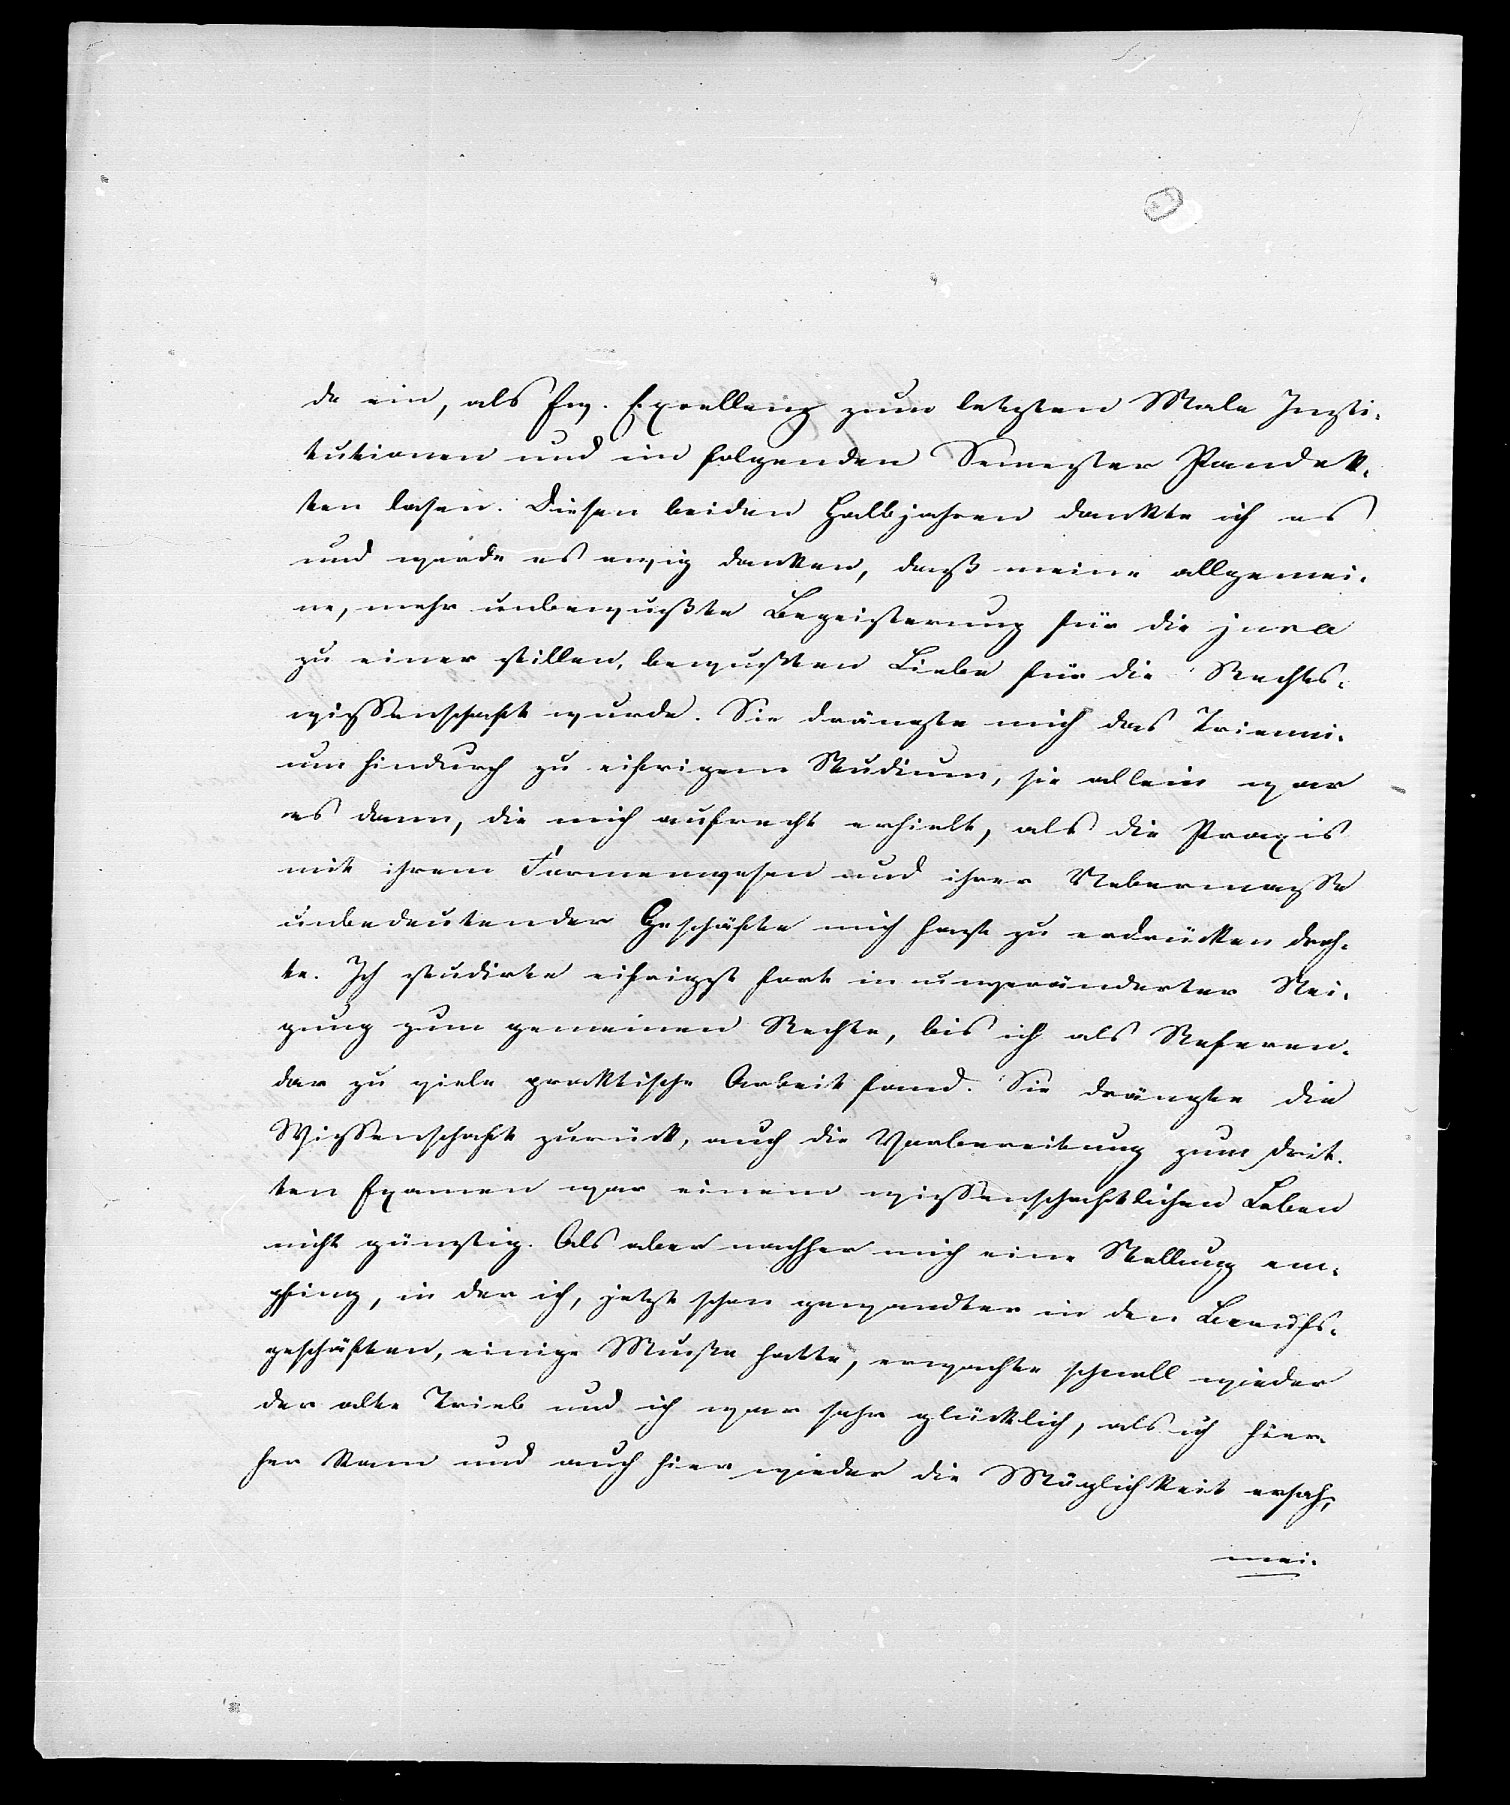 da ein, als Ew. Excellenz zum letzten Male Insti-
tutionen und im folgenden Semester Pandek-
ten lasen. Diesen beiden Halbjahren dankte ich es
und werde es ewig danken, daß meine allgemei-
ne, mehr unbewußte Begeisterung für die jura
zu einer stillen, bewußten Liebe für die Rechts-
wissenschaft wurde. Sie drängte mich das Trienni-
um hindurch zu eifrigem Studium, sie allein war
es dann, die mich aufrecht erhielt, als die Praxis
mit ihrem Formenwesen und ihrer Uebermasse
unbedeutender Geschäfte mich fast zu erdrücken droh-
te. Ich studirte eifrigst fort in unveränderter Nei-
gung zum gemeinen Rechte, bis ich als Referen-
dar zu viele praktische Arbeit fand. Sie drängte die
Wissenschaft zurück, auch die Vorbereitung zum drit-
ten Examen war einem wissenschaftlichen Leben
nicht günstig. Als aber nachher mich eine Stellung em-
pfing, in der ich, jetzt schon gewandter in den Berufs-
geschäften, einige Muße hatte, erwachte schnell wieder
der alte Trieb und ich war sehr glücklich, als ich hier-
her kam und auch hier wieder die Möglichkeit ersah,
mei-